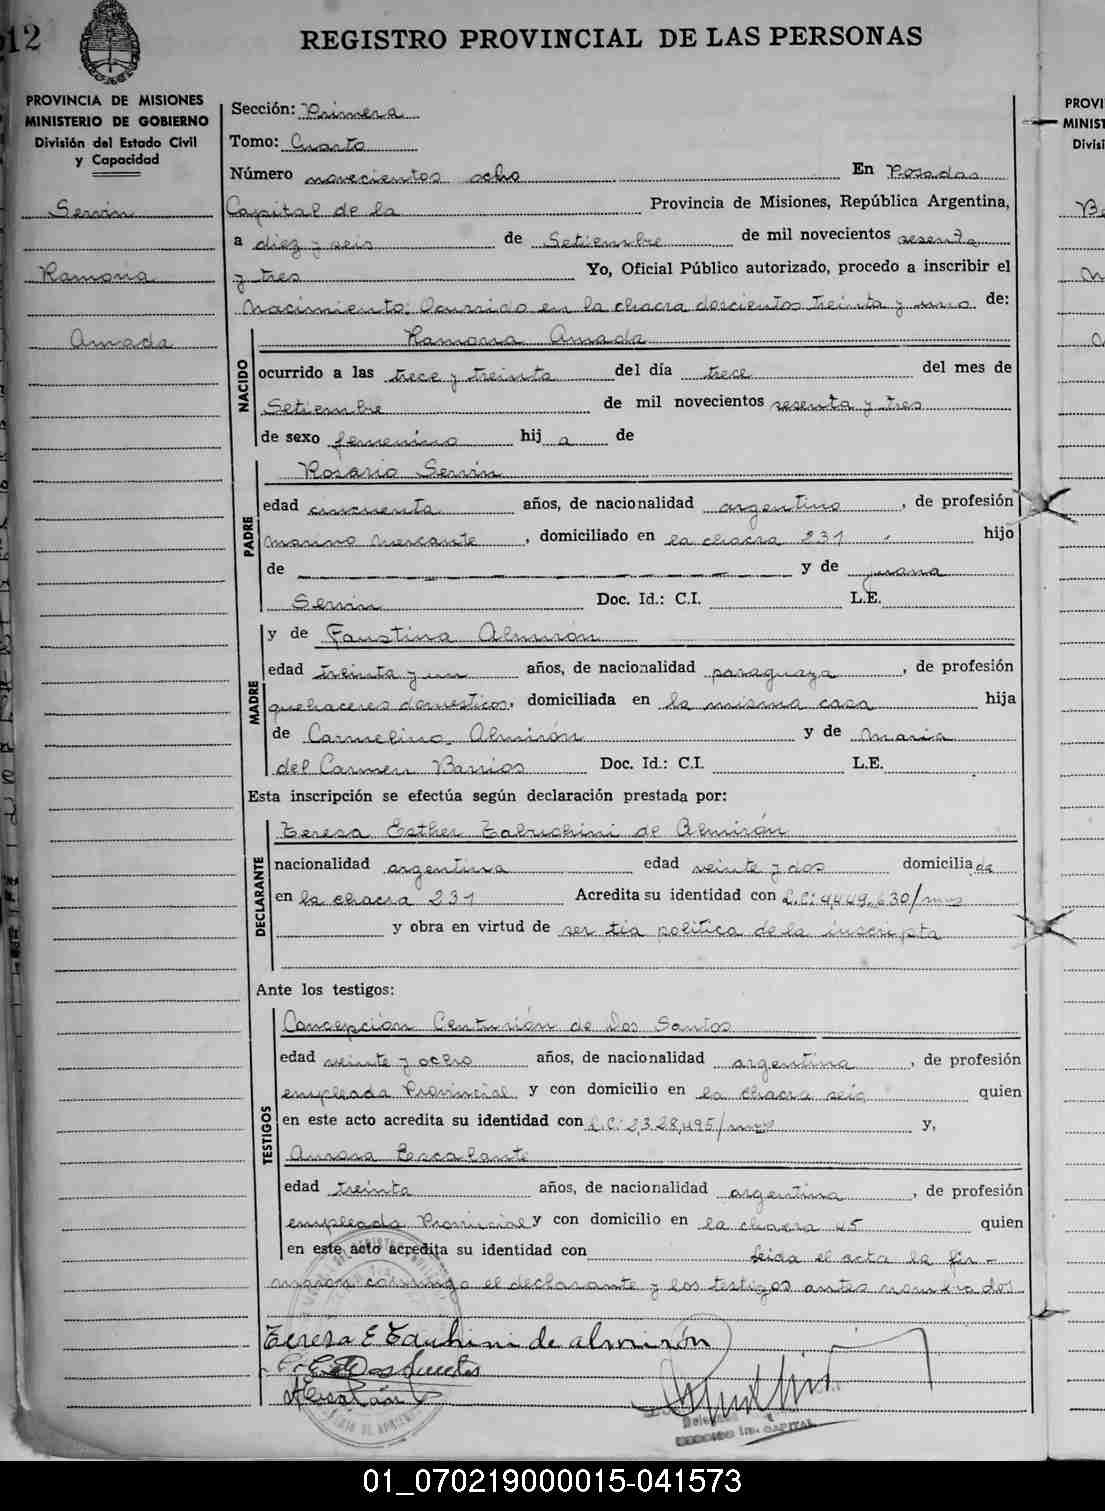 12
REGISTRO PROVINCIAL DE LAS PERSONAS
PROVINCIA DE MISIONES
MINISTERIO DE GOBIERNO
División del Estado Civil
y Capacidad
Servin
Ramona
Amada
Sección: Primera
Tomo: Cuarto
Número novecientos ocho En Posadas
Capital de la Provincia de Misiones, República Argentina,
a diez y seis de Setiembre de mil novecientos sesenta
y tres Yo, Oficial Público autorizado, procedo a inscribir el
Nacimiento: Ocurrido en la chacra doscientos treinta y uno de:
NACIDO
Ramona Amada
ocurrido a las trece y treinta del día trece del mes de
Setiembre de mil novecientos sesenta y tres
de sexo femenino hij a de
PADRE
Rosario Servin
edad cincuenta años, de nacionalidad argentino, de profesión
marino mercante, domiciliado en la chacra 231, hijo
de y de Juana
Servin Doc. Id.: C.I. L.E.
MADRE
y de Faustina Almirón
edad treinta y un años, de nacionalidad paraguaya, de profesión
quehaceres domesticos, domiciliada en la misma casa hija
de Carmelino Almirón y de Maria
del Carmen Barrios Doc. Id.: C.I. L.E.
Esta inscripción se efectúa según declaración prestada por:
DECLARANTE
Teresa Esther de Almirón
nacionalidad argentina edad veinte y dos domiciliada
en la chacra 231 Acredita su identidad con L.C: 4.449.630/
y obra en virtud de ser tía politica de la inscripta
Ante los testigos:
TESTIGOS
Concepción Centurión de Dos Santos
edad veinte y ocho años, de nacionalidad argentina, de profesión
empleada Provincial y con domicilio en la chacra seis quien
en este acto acredita su identidad con L.C: 2.328.495/ y,
Aurora Escalante
edad treinta años, de nacionalidad argentina, de profesión
empleada Provincial y con domicilio en la chacra 45 quien
en este acto acredita su identidad con Leida el acta la fir-
maron conmigo el declarante y los testigos antes nombrados
Teresa E de Almirón
01_070219000015-041573